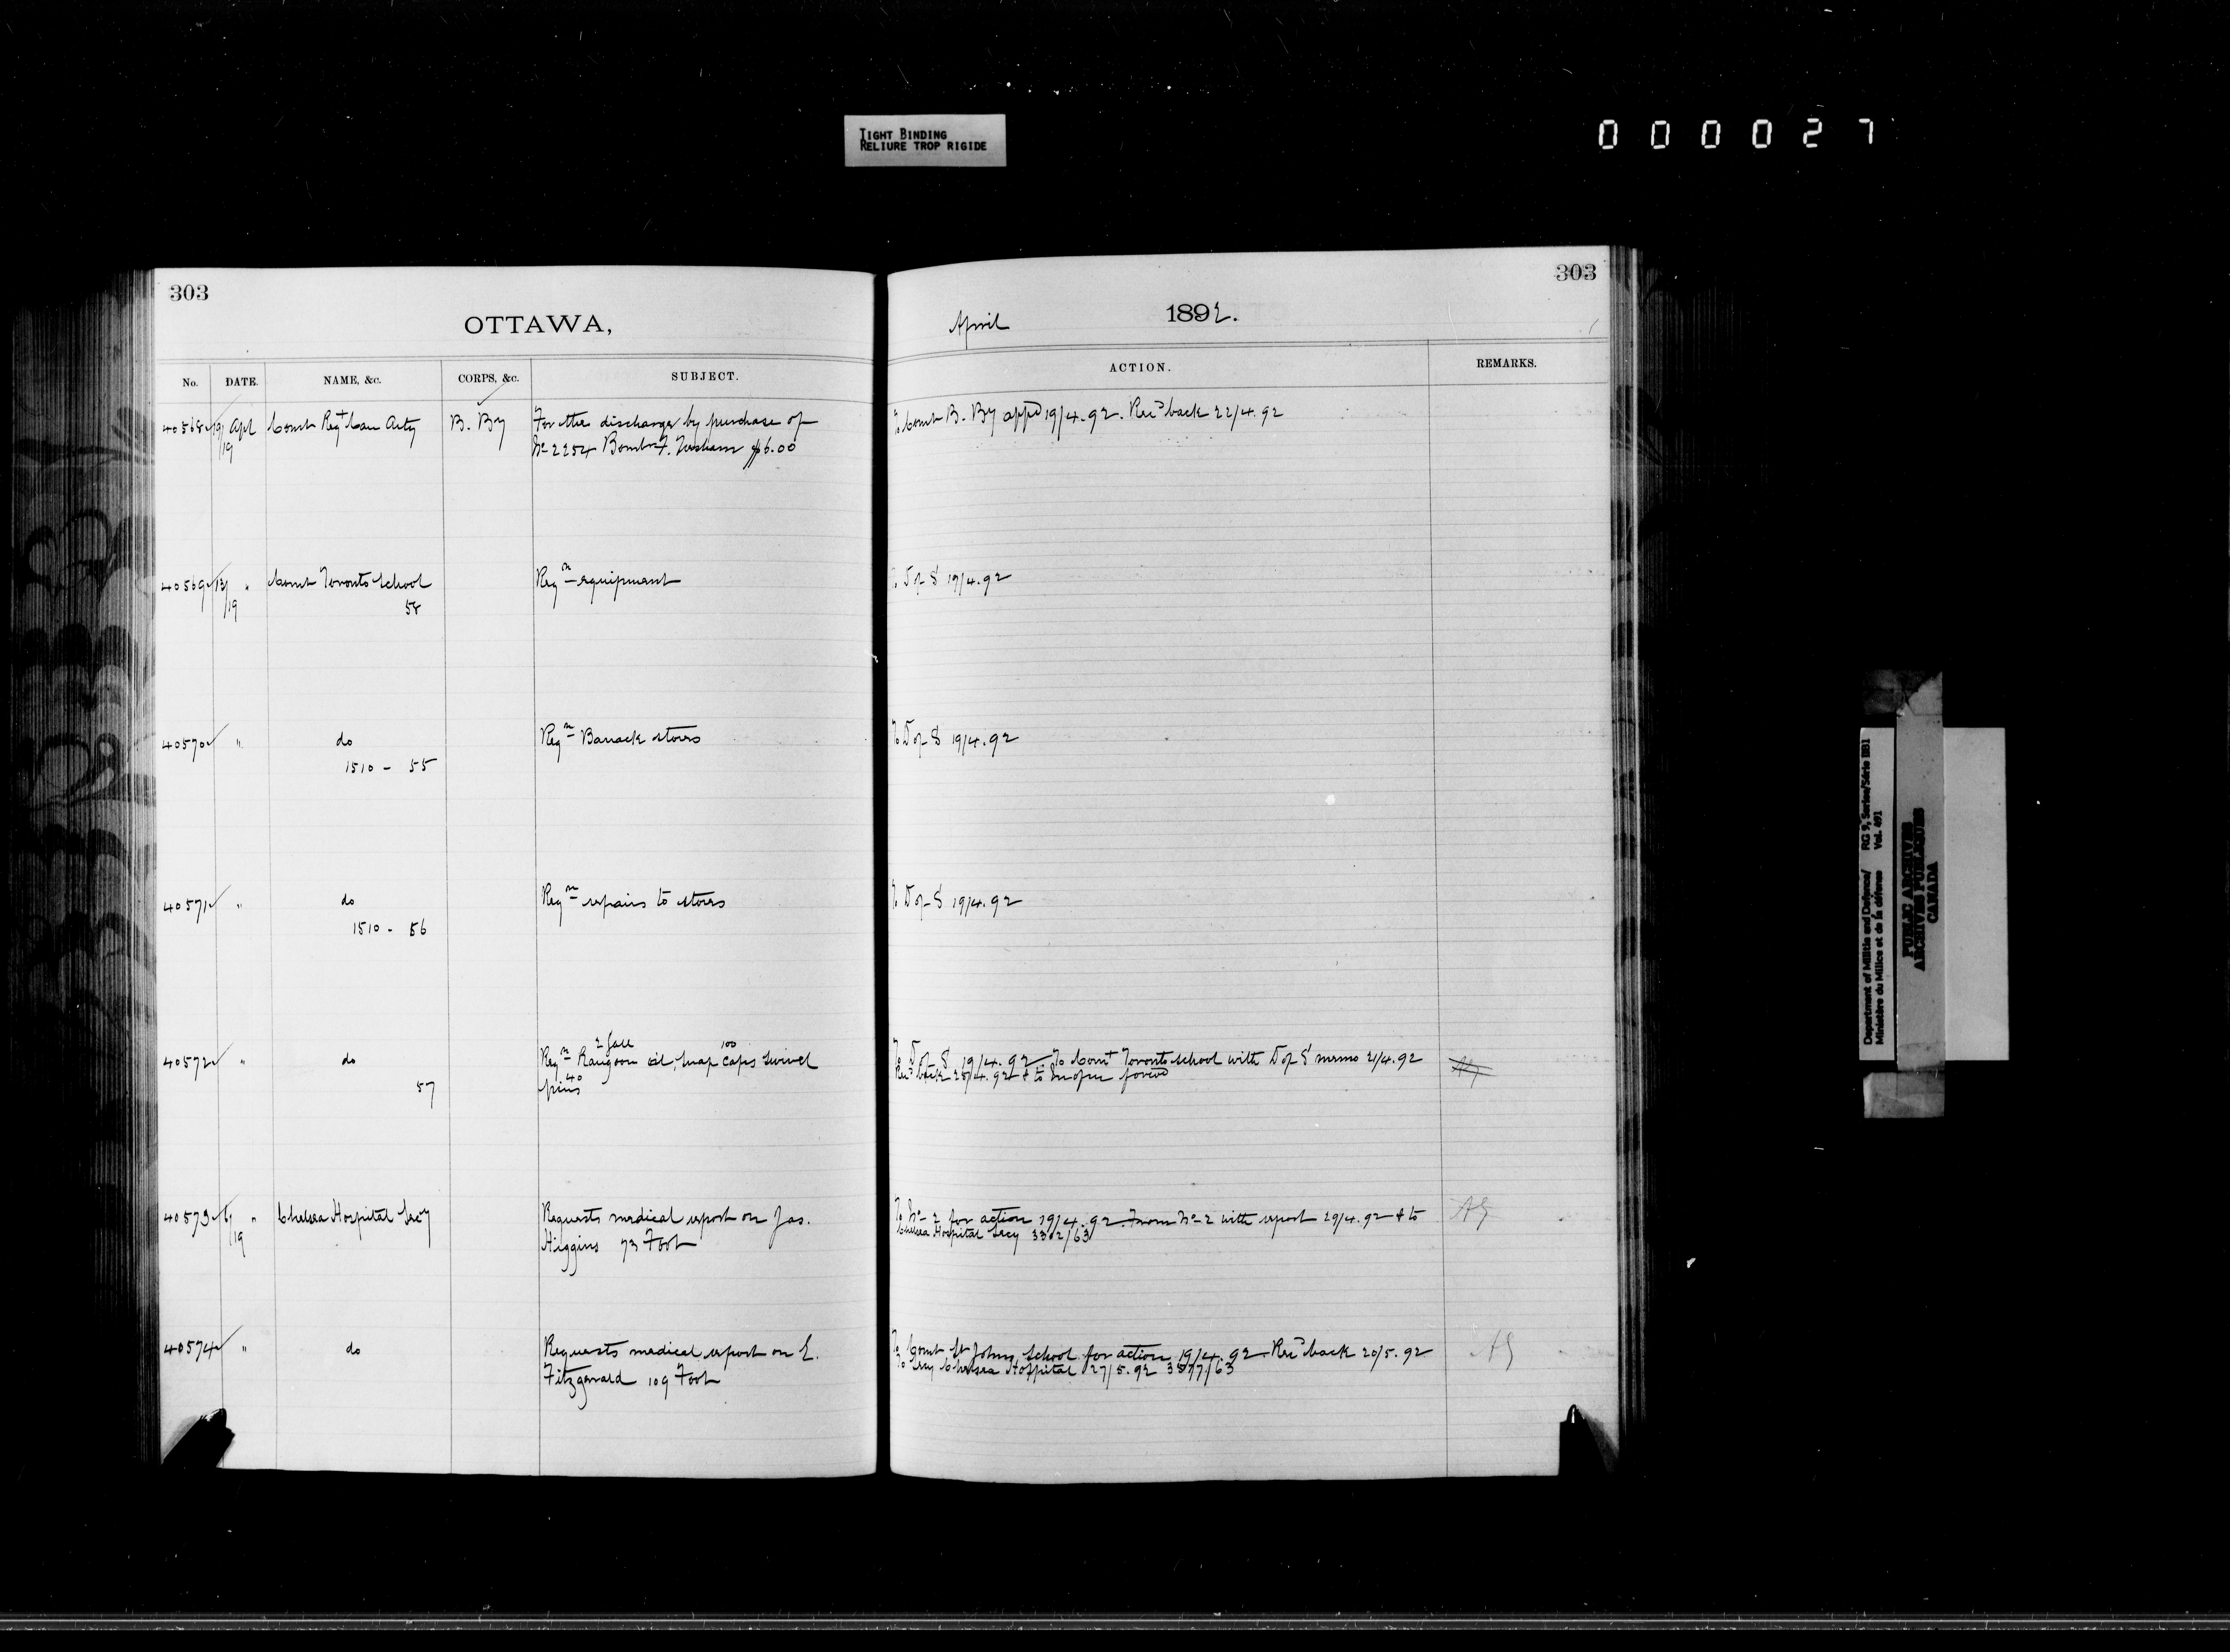 TIGHT BINDING
RELIURE TROP RIGIDE
000027
303
OTTAWA,
No. DATE. NAME, &c. CORPS, &c. SUBJECT.
40568 19/19 Apl Comt Regt Can Arty B. By For the discharge by purchase of
No 2254 Bombr F. $6.00
40569 13/19 " Comt Toronto School Reqn equipment
58
40570 " do Reqn Barrack stores
1510 - 55
40571 " do Reqn repairs to stores
1510 - 56
2 gall 100
40572 " do Reqn Rangoon oil, snap caps swivel
40
57 pins
40573 6/19 " Chelsea Hospital Secy Requests medical report on Jas.
Higgins 73 Foot
40574 " do Requests medical report on E.
Fitzgerald 109 Foot
303
April 1892.
ACTION. REMARKS.
To Comt B. By appd 19/4.92. Recd back 22/4.92
To D of S 19/4.92
To D of S 19/4.92
To D of S 19/4.92
To D of S 19/4.92. To Comt Toronto School with D of S memo 21/4.92
Recd back 25/4.92 & to
To No 2 for action 19/4.92. From No 2 with report 29/4.92 & to AG
Chelsea Hospital Secy 3302/63
To Comt St Johns School for action 19/4.92 Recd back 20/5.92 AG
To Secy Chelsea Hospital 27/5.92 3877/63
Department of Militia and Defence/ RG 9, Series/Série IIB1
Ministère du Milice et de la défense Vol. 491
PUBLIC ARCHIVES
ARCHIVES PUBLIQUES
CANADA